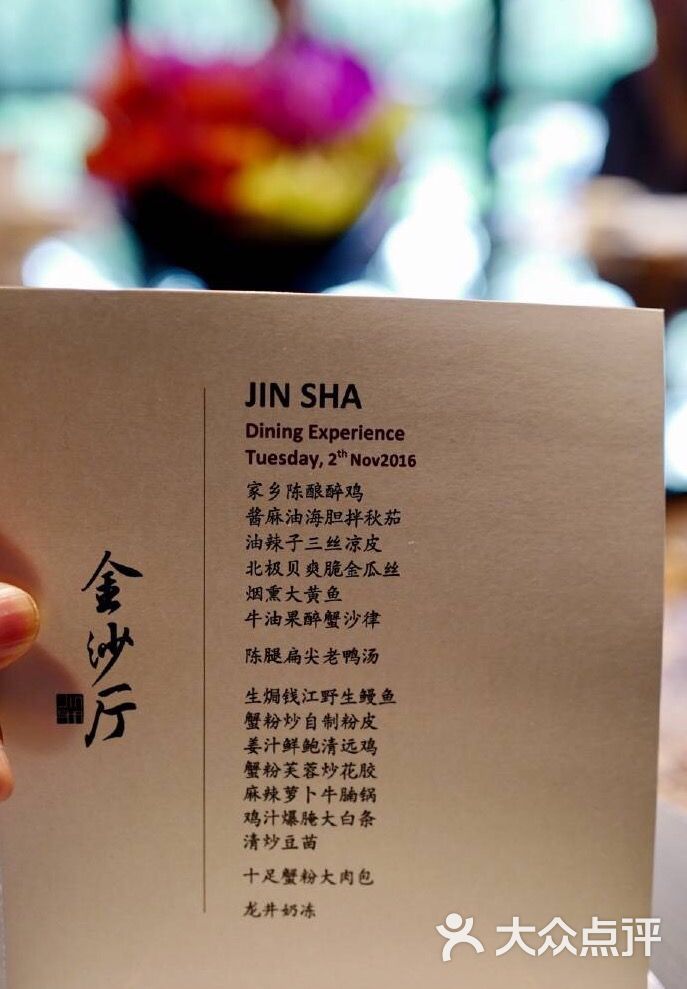 JIN SHA
Dining Experience
Tuesday, 2th Nov2016
家乡陈酿醉鸡
酱麻油海胆拌秋茄
油辣子三丝凉皮
北极贝爽脆金瓜丝
烟熏大黄鱼
牛油果醉蟹沙律
陈腿扁尖老鸭汤
生焗钱江野生鳗鱼
蟹粉炒自制粉皮
姜汁鲜鲍清远鸡
蟹粉芙蓉炒花胶
麻辣萝卜牛腩锅
鸡汁爆腌大白条
清炒豆苗
十足蟹粉大肉包
龙井奶冻
金沙厅
大众点评